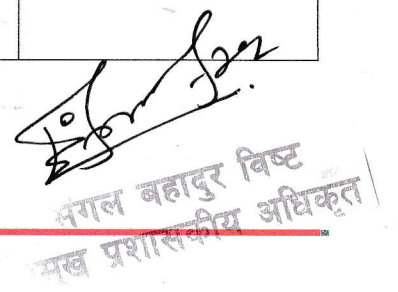 मंगल बहादुर विष्ट
प्रमुख प्रशासकीय अधिकृत